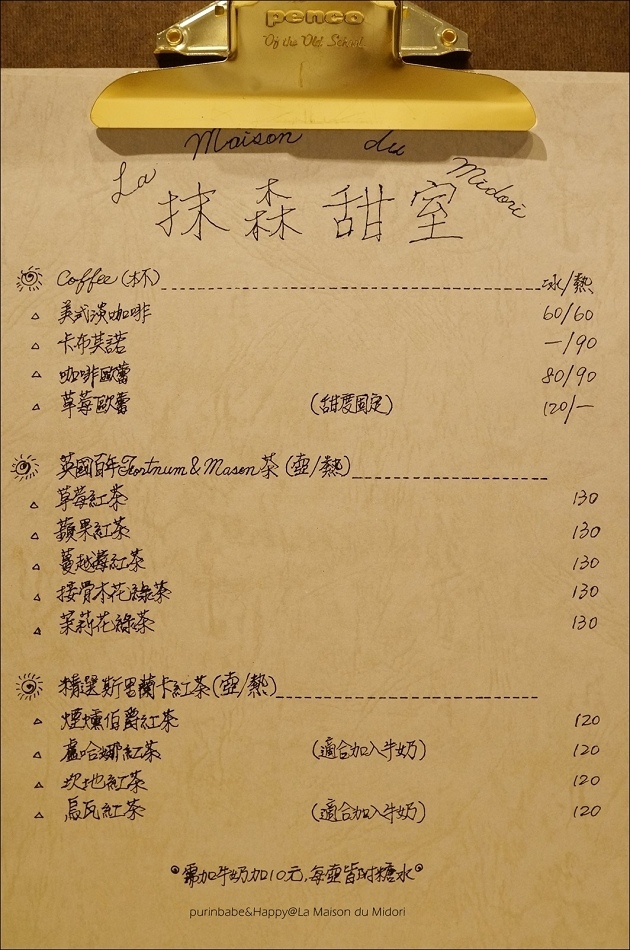 penco
Of the Old School
La Maison du Midori
抹森甜室
Coffee (杯) 冰/熱
美式淡咖啡 60/60
卡布其諾 -/90
咖啡歐蕾 80/90
草莓歐蕾 (甜度固定) 120/-
英國百年Fortnum & Mason茶 (壺/熱)
草莓紅茶 130
蘋果紅茶 130
蔓越莓紅茶 130
接骨木花綠茶 130
茉莉花綠茶 130
精選斯里蘭卡紅茶 (壺/熱)
煙燻伯爵紅茶 120
盧哈娜紅茶 (適合加入牛奶) 120
坎地紅茶 120
烏瓦紅茶 (適合加入牛奶) 120
需加牛奶加10元,每壺皆附糖水
purinbabe&Happy@La Maison du Midori